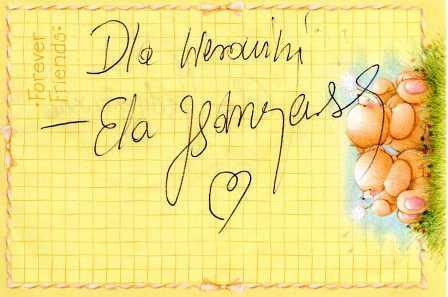 Dla Weroniki
– Ela
Forever
Friends